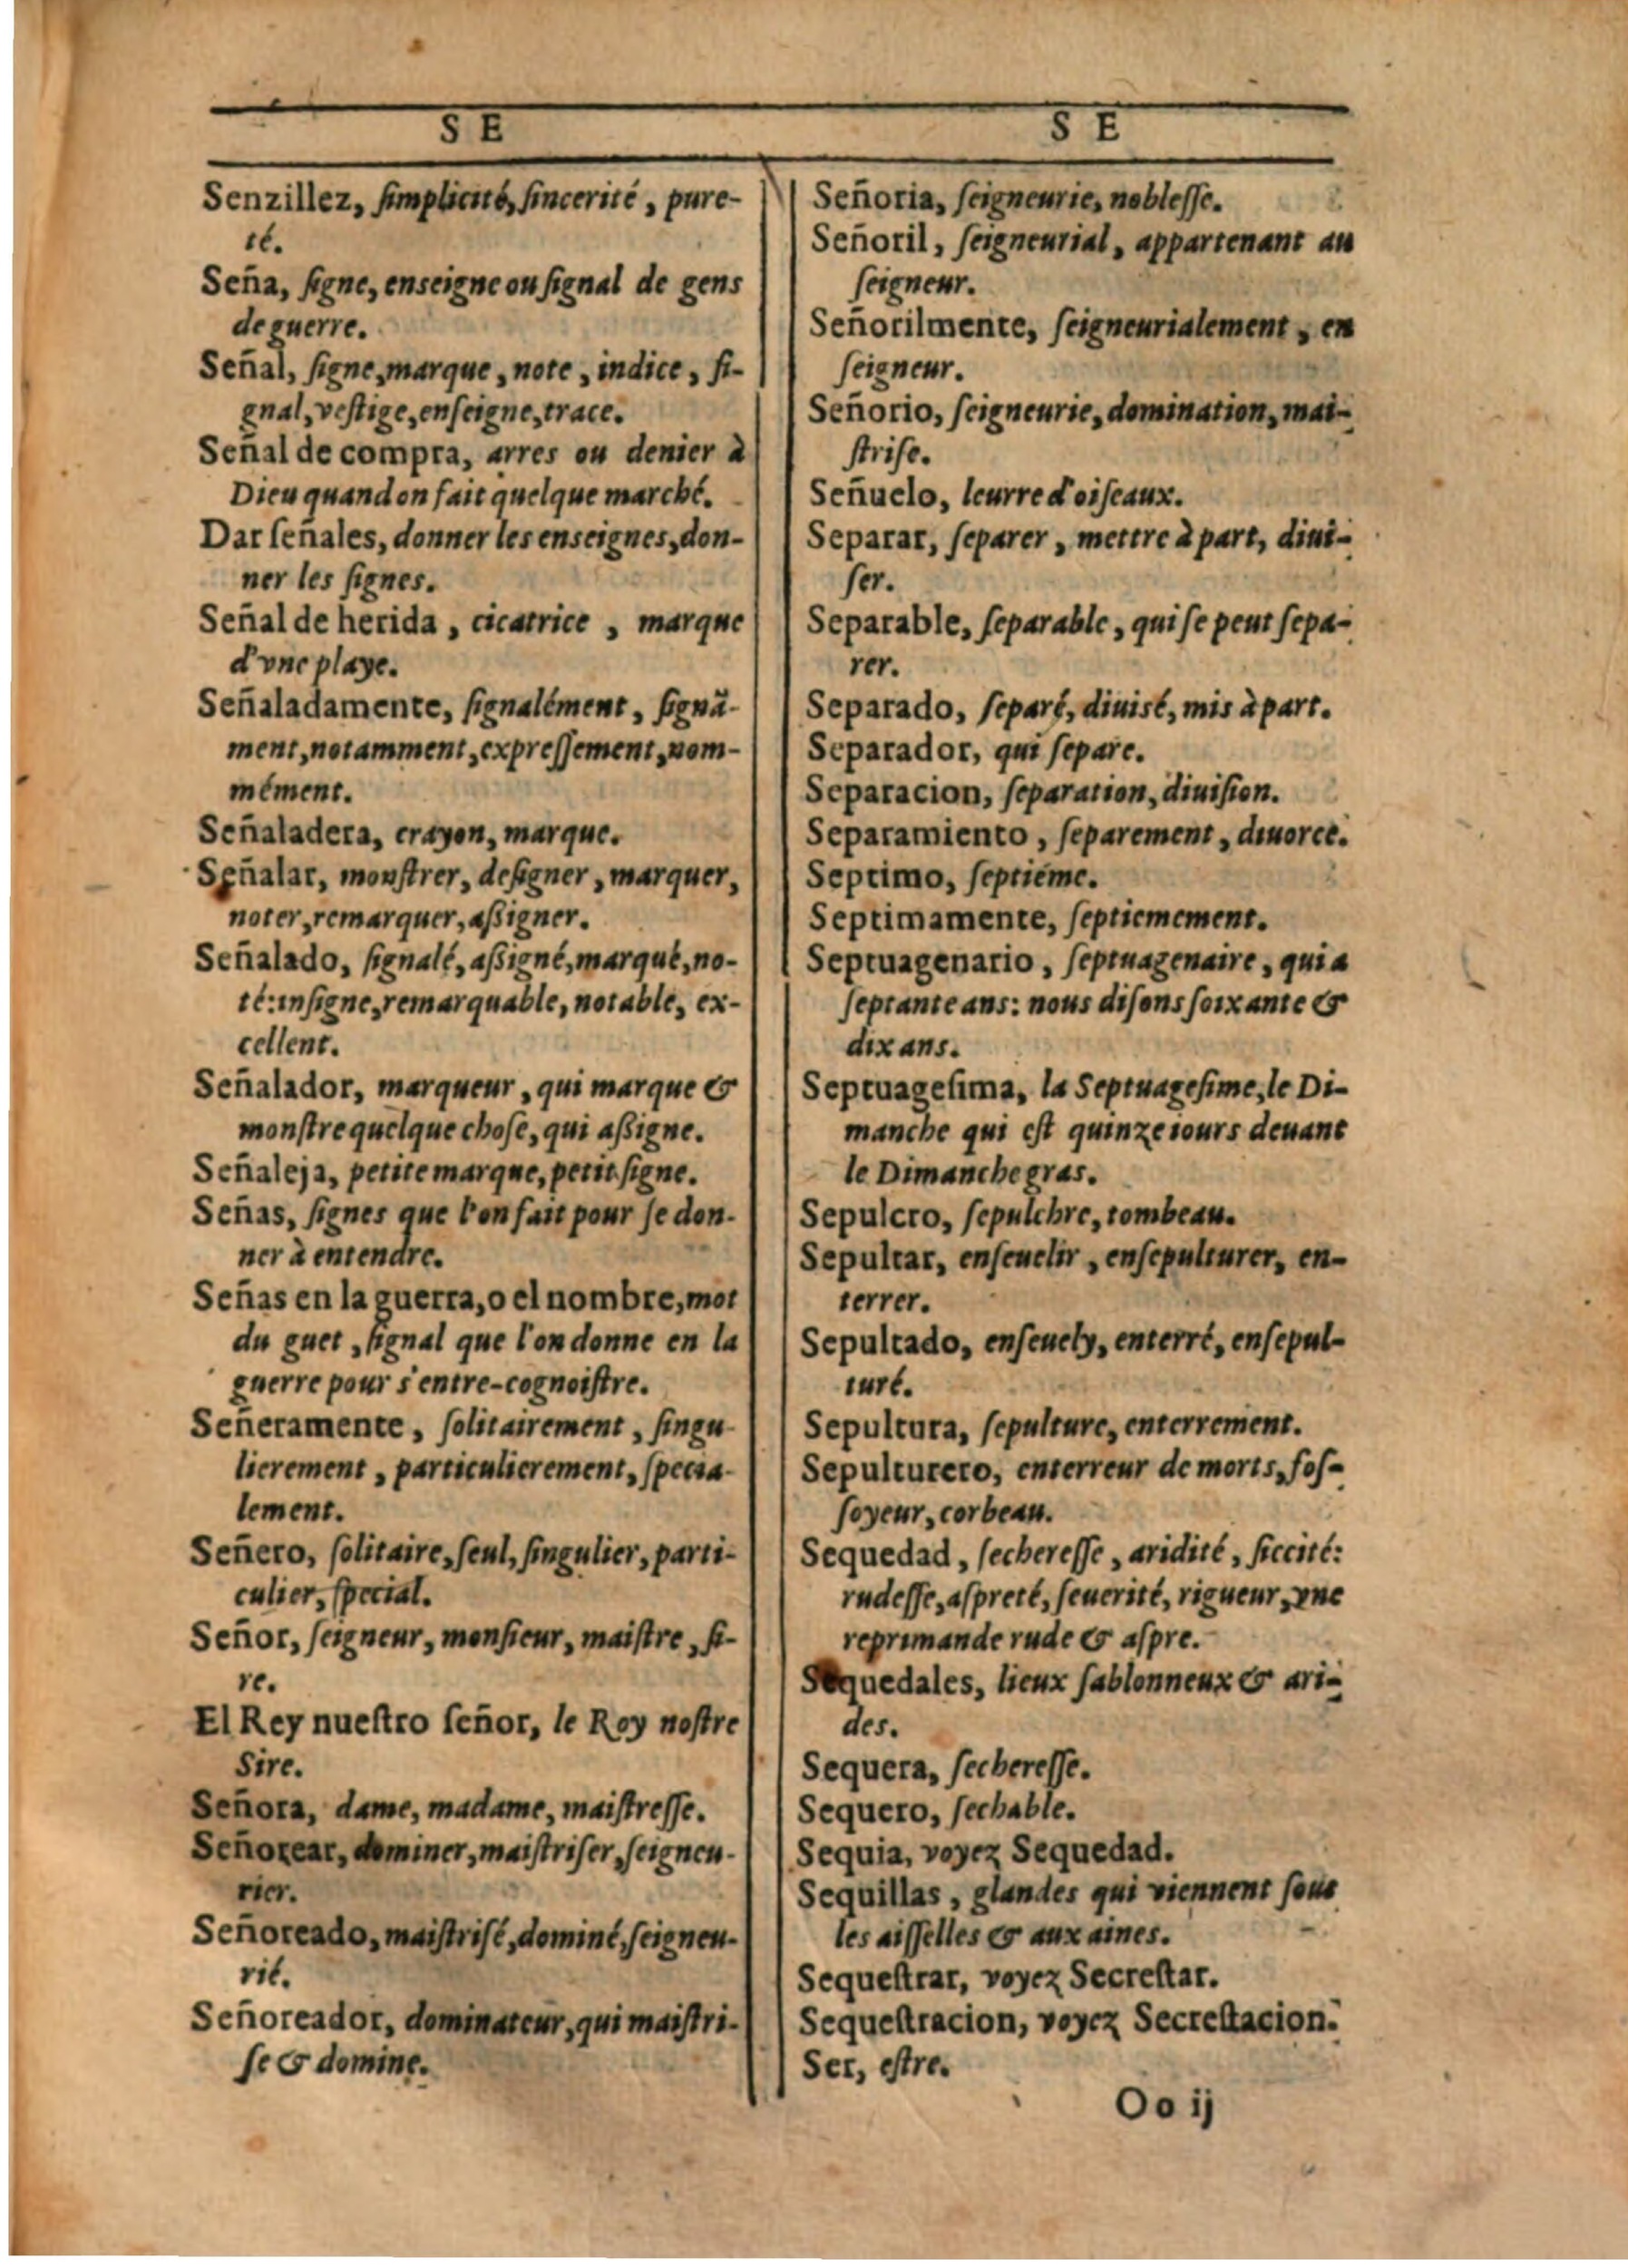 S E
Senzillez, ſimplicité, ſincerité, pure-
té.
Seña, ſigne, enseigne ou ſignal de gens
de guerre.
Señal, ſigne, marque, note, indice, ſi-
gnal, veſtige, enſeigne, trace.
Señal de compra, arres ou denier à
Dieu quand on fait quelque marché.
Dar ſeñales, donner les enseignes, don-
ner les ſignes.
Señal de herida, cicatrice, marque
d'vne playe.
Señaladamente, ſignalément, ſignã-
ment, notamment, expreſſement, nom-
mément.
Señaladera, crayon, marque.
Señalar, monſtrer, deſigner, marquer,
noter, remarquer, aßigner.
Señalado, ſignalé, aßigné, marqué, no-
té: inſigne, remarquable, notable, ex-
cellent.
Señalador, marqueur, qui marque &
monſtre quelque choſe, qui aßigne.
Señaleja, petite marque, petit ſigne.
Señas, ſignes que l'on fait pour ſe don-
ner à entendre.
Señas en la guerra, o el nombre, mot
du guet, ſignal que l'on donne en la
guerre pour s'entre-cognoiſtre.
Señeramente, ſolitairement, ſingu-
lierement, particulierement, ſpecia-
lement.
Señero, ſolitaire, ſeul, ſingulier, parti-
culier, ſpecial.
Señor, ſeigneur, monſieur, maiſtre, ſi-
re.
El Rey nueſtro ſeñor, le Roy noſtre
Sire.
Señora, dame, madame, maiſtreſſe.
Señorear, dominer, maiſtriſer, ſeigneu-
rier.
Señoreado, maiſtriſé, dominé, ſeigneu-
rié.
Señoreador, dominateur, qui maiſtri-
ſe & domine.
S E
Señoria, ſeigneurie, nobleſſe.
Señoril, ſeigneurial, appartenant au
ſeigneur.
Señorilmente, ſeigneurialement, en
ſeigneur.
Señorio, ſeigneurie, domination, mai-
ſtriſe.
Señuelo, leurre d'oiſeaux.
Separar, ſeparer, mettre à part, diui-
ſer.
Separable, ſeparable, qui ſe peut ſepa-
rer.
Separado, ſeparé, diuisé, mis à part.
Separador, qui ſepare.
Separacion, ſeparation, diuiſion.
Separamiento, ſeparement, diuorce.
Septimo, ſeptiéme.
Septimamente, ſeptiemement.
Septuagenario, ſeptuagenaire, qui a
ſeptante ans: nous diſons ſoixante &
dix ans.
Septuageſima, la Septuageſime, le Di-
manche qui eſt quinze iours deuant
le Dimanche gras.
Sepulcro, ſepulchre, tombeau.
Sepultar, enſeuelir, enſepulturer, en-
terrer.
Sepultado, enſeuely, enterré, enſepul-
turé.
Sepultura, ſepulture, enterrement.
Sepulturero, enterreur de morts, foſ-
ſoyeur, corbeau.
Sequedad, ſechereſſe, aridité, ſiccité:
rudeſſe, aſpreté, ſeuerité, rigueur, vne
reprimande rude & aſpre.
Sequedales, lieux ſablonneux & ari-
des.
Sequera, ſechereſſe.
Sequero, ſechable.
Sequia, voyez Sequedad.
Sequillas, glandes qui viennent ſous
les aiſſelles & aux aines.
Sequeſtrar, voyez Secreſtar.
Sequeſtracion, voyez Secreſtacion.
Ser, eſtre.
Oo ij